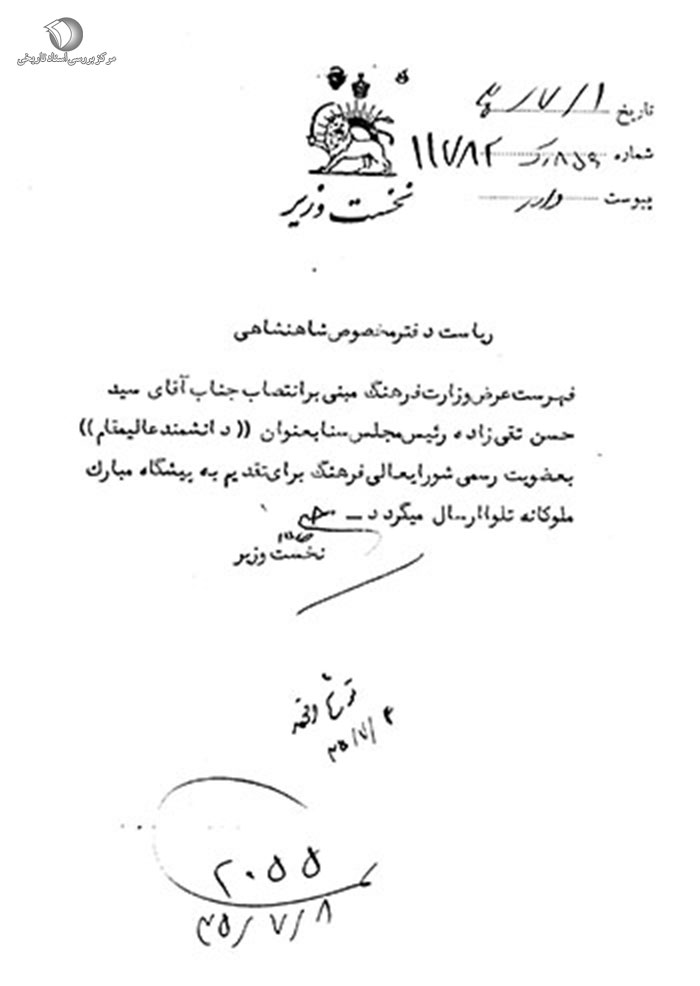 مرکز بررسی اسناد تاریخی
تاریخ
شماره ۱۱۷۸۲
پیوست دارد
نخست وزیر
ریاست دفتر مخصوص شاهنشاهی
فهرست عرض وزارت فرهنگ مبنی بر انتصاب جناب آقای سید
حسن تقی زاده رئیس مجلس سنا بعنوان ((دانشمند عالیمقام))
بعضویت رسمی شورایعالی فرهنگ برای تقدیم به پیشگاه مبارک
ملوکانه تلوا ارسال میگردد ــ
نخست وزیر
۳۵/۷/۴
۲۰۵۵
۳۵/۷/۸